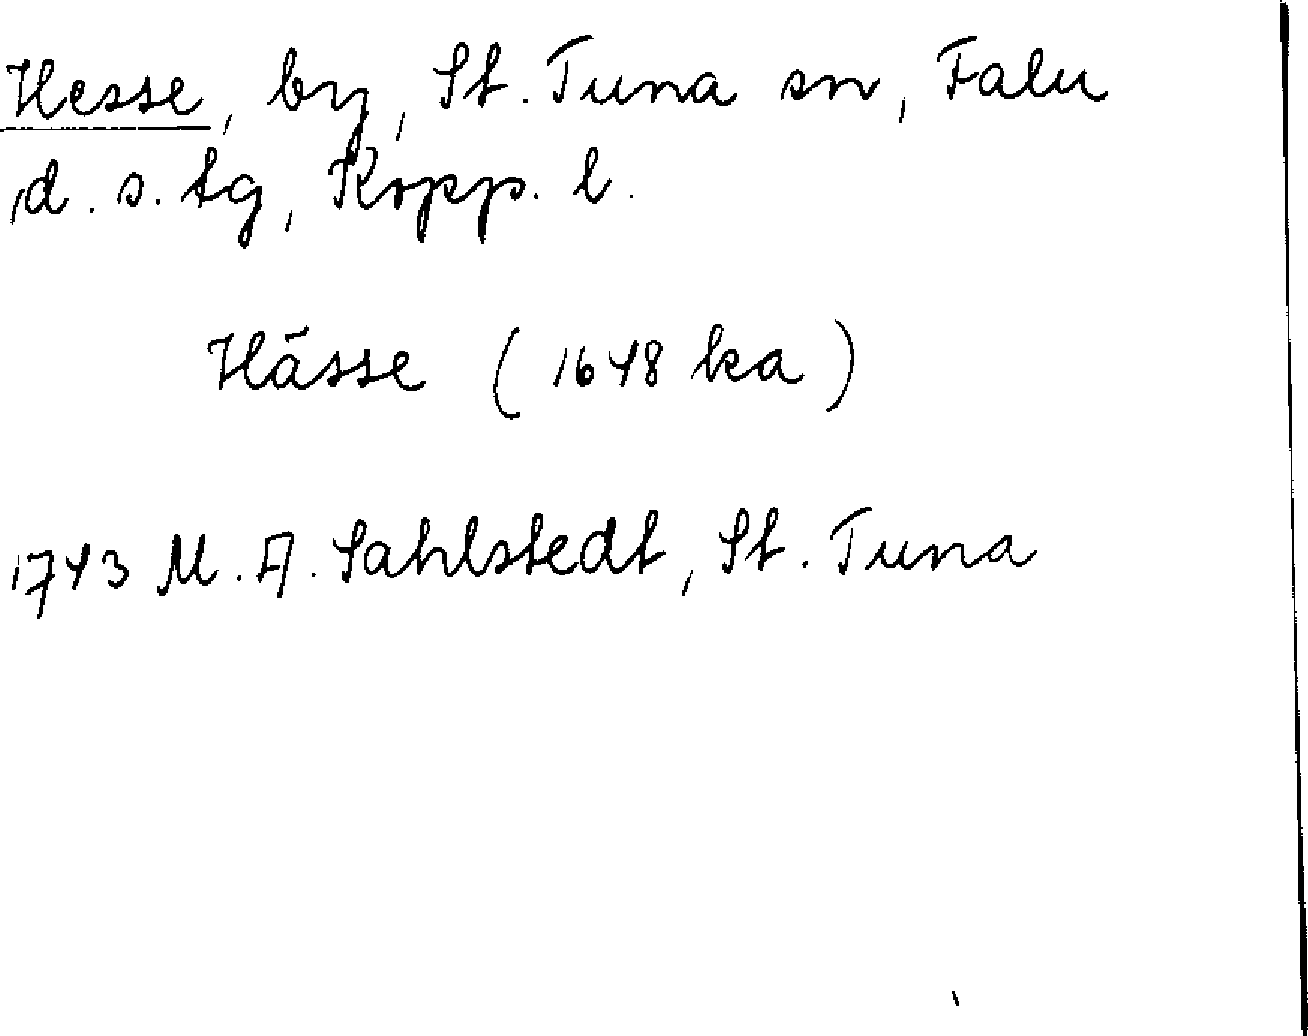 Hesse, by, St. Tuna sn, Falu
d. s. tg, Kopp. l.
Hässe (1648 ka)
1743 M. A. Sahlstedt, St. Tuna